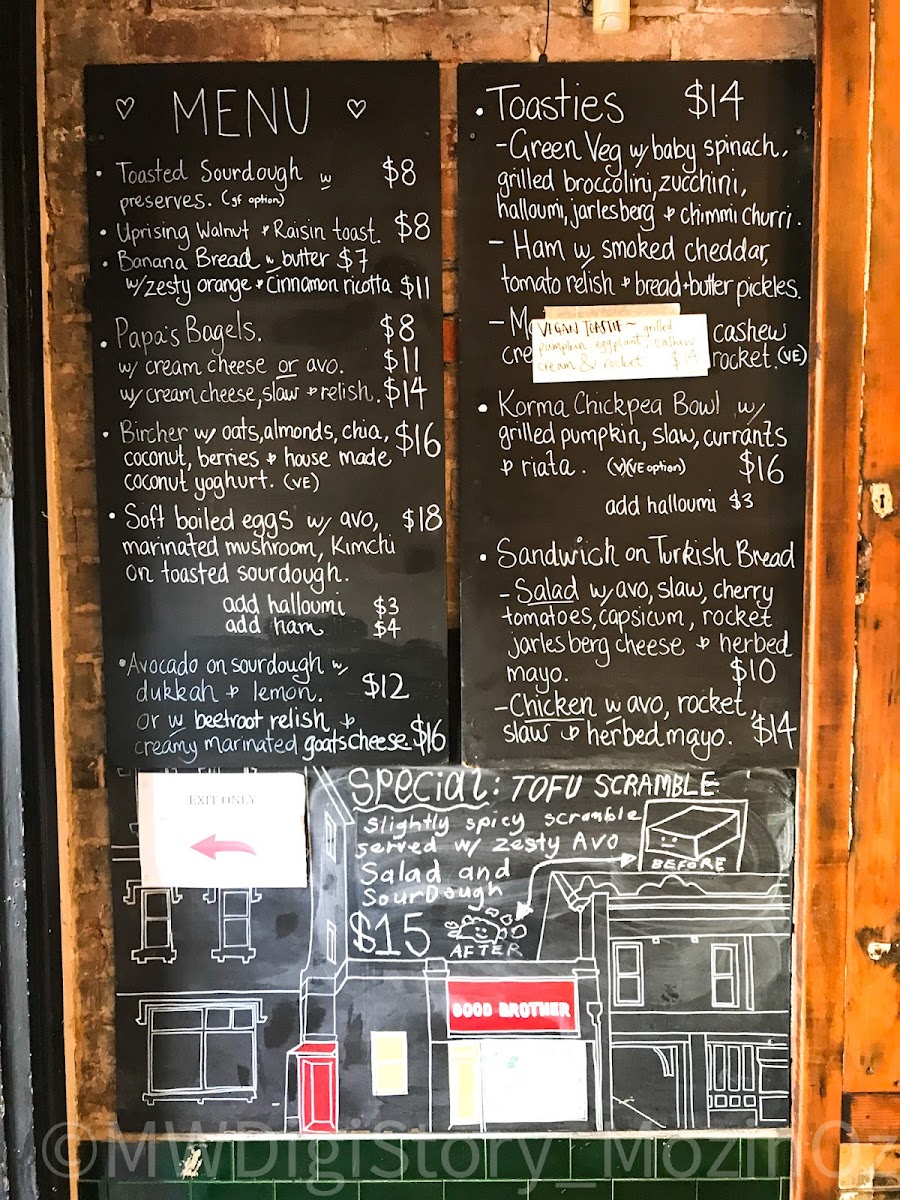 ♡ MENU ♡
• Toasted Sourdough w $8
preserves. (gf option)
• Uprising Walnut & Raisin toast. $8
• Banana Bread w butter $7
w/zesty orange & Cinnamon ricotta $11
• Papa's Bagels. $8
w/ cream cheese or avo. $11
w/ cream cheese, slaw & relish. $14
• Bircher w/ oats, almonds, chia, $16
coconut, berries & house made
coconut yoghurt. (VE)
• Soft boiled eggs w/ avo, $18
marinated mushroom, Kimchi
on toasted sourdough.
add halloumi $3
add ham $4
• Avocado on sourdough w/
dukkah & lemon. $12
or w beetroot relish &
creamy marinated goats cheese $16
• Toasties $14
- Green Veg w/ baby spinach,
grilled broccolini, zucchini,
halloumi, jarlesberg & chimmi churri.
- Ham w/ smoked cheddar,
tomato relish & bread+butter pickles.
- M cashew
cre rocket. (VE)
VEGAN TOASTIE ~ grilled
pumpkin, eggplant, cashew
cream & rocket $14
• Korma Chickpea Bowl w/
grilled pumpkin, slaw, currants
& riata. (V)(VE option) $16
add halloumi $3
• Sandwich on Turkish Bread
- Salad w/ avo, slaw, cherry
tomatoes, capsicum, rocket
jarlesberg cheese & herbed
mayo. $10
- Chicken w avo, rocket,
slaw & herbed mayo. $14
EXIT ONLY
Special: TOFU SCRAMBLE
slightly spicy scramble
served w/ zesty Avo
Salad and
SourDough
$15
BEFORE
AFTER
GOOD BROTHER
©MWDigiStory_MozinOz